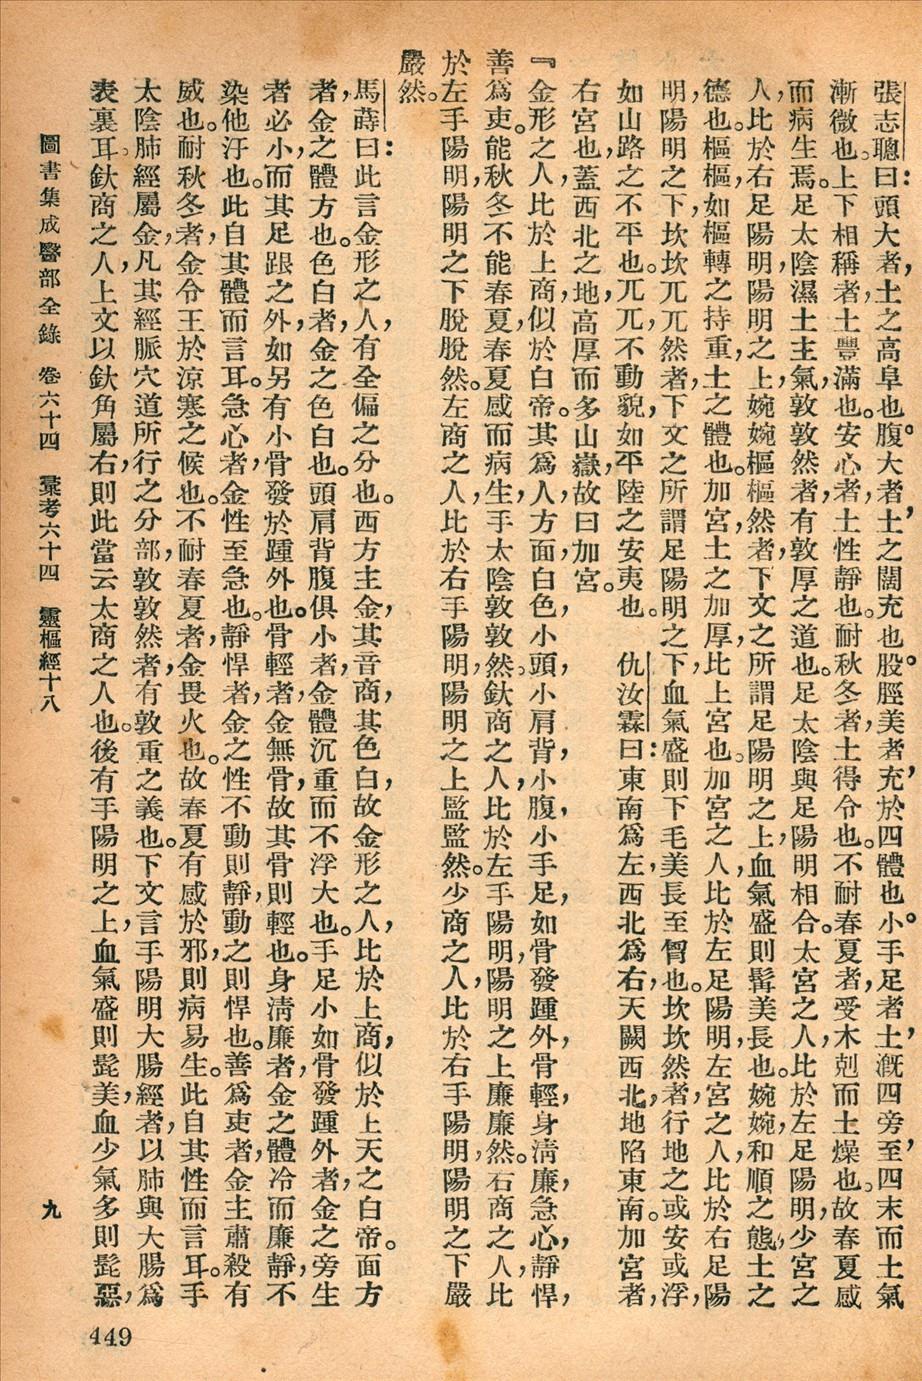 張志聰曰：頭大者，土之高阜也。腹大者，土之闊充也。股脛美者，充於四體也。小手足者，土溉四旁，至四末而土氣
漸微也。上下相稱者，土豐滿也。安心者，土性靜也。耐秋冬者，土得令也。不耐春夏者，受木剋而土燥也。故春夏感
而病生焉。足太陰濕土主氣，敦敦然者，有敦厚之道也。足太陰與足陽明相合。太宮之人，比於左足陽明，少宮之
人，比於右足陽明，陽明之上，婉婉樞樞然者，下文之所謂足陽明之上，血氣盛則髯美長也。婉婉，和順之態，土之
德也。樞樞，如樞轉之持重，土之體也。加宮，土之加厚，比上宮也。加宮之人，比於左足陽明，左宮之人，比於右足陽
明，陽明之下，坎坎兀兀然者，下文之所謂足陽明之下，血氣盛則下毛美長至胷也。坎坎然者，行地之或安或浮，
如山路之不平也。兀兀，不動貌，如平陸之安夷也。　仇汝霖曰：東南爲左，西北爲右，天闕西北，地陷東南。加宮者，
右宮也，蓋西北之地，高厚而多山嶽，故曰加宮。
『金形之人，比於上商，似於白帝。其爲人，方面，白色，小頭，小肩背，小腹，小手足，如骨發踵外，骨輕，身淸廉，急心，靜悍，
善爲吏。能秋冬不能春夏，春夏感而病生，手太陰敦敦然。釱商之人，比於左手陽明，陽明之上廉廉然。右商之人，比
於左手陽明，陽明之下脫脫然。左商之人，比於右手陽明，陽明之上監監然。少商之人，比於右手陽明，陽明之下嚴
嚴然。
馬蒔曰：此言金形之人，有全偏之分也。西方主金，其音商，其色白，故金形之人，比於上商，似於上天之白帝。面方
者，金之體方也。色白者，金之色白也。頭肩背腹俱小者，金體沉重而不浮大也。手足小如骨發踵外者，金之旁生
者必小，而其足跟之外，如另有小骨發於踵外也。骨輕者，金無骨，故其骨則輕也。身淸廉者，金之體冷而廉靜，不
染他汙也。此自其體而言耳。急心者，金性至急也。靜悍者，金之性不動則靜，動之則悍也。善爲吏者，金主肅殺有
威也。耐秋冬者，金令王於涼寒之候也。不耐春夏者，金畏火也。故春夏有感於邪，則病易生。此自其性而言耳。手
太陰肺經屬金，凡其經脈穴道所行之分部，敦敦然者，有敦重之義也。下文言手陽明大腸經者，以肺與大腸爲
表裏耳。釱商之人，上文以釱角屬右，則此當云太商之人也。後有手陽明之上，血氣盛則髭美，血少氣多則髭惡，
圖書集成醫部全錄　卷六十四　彙考六十四　靈樞經十八　九
449